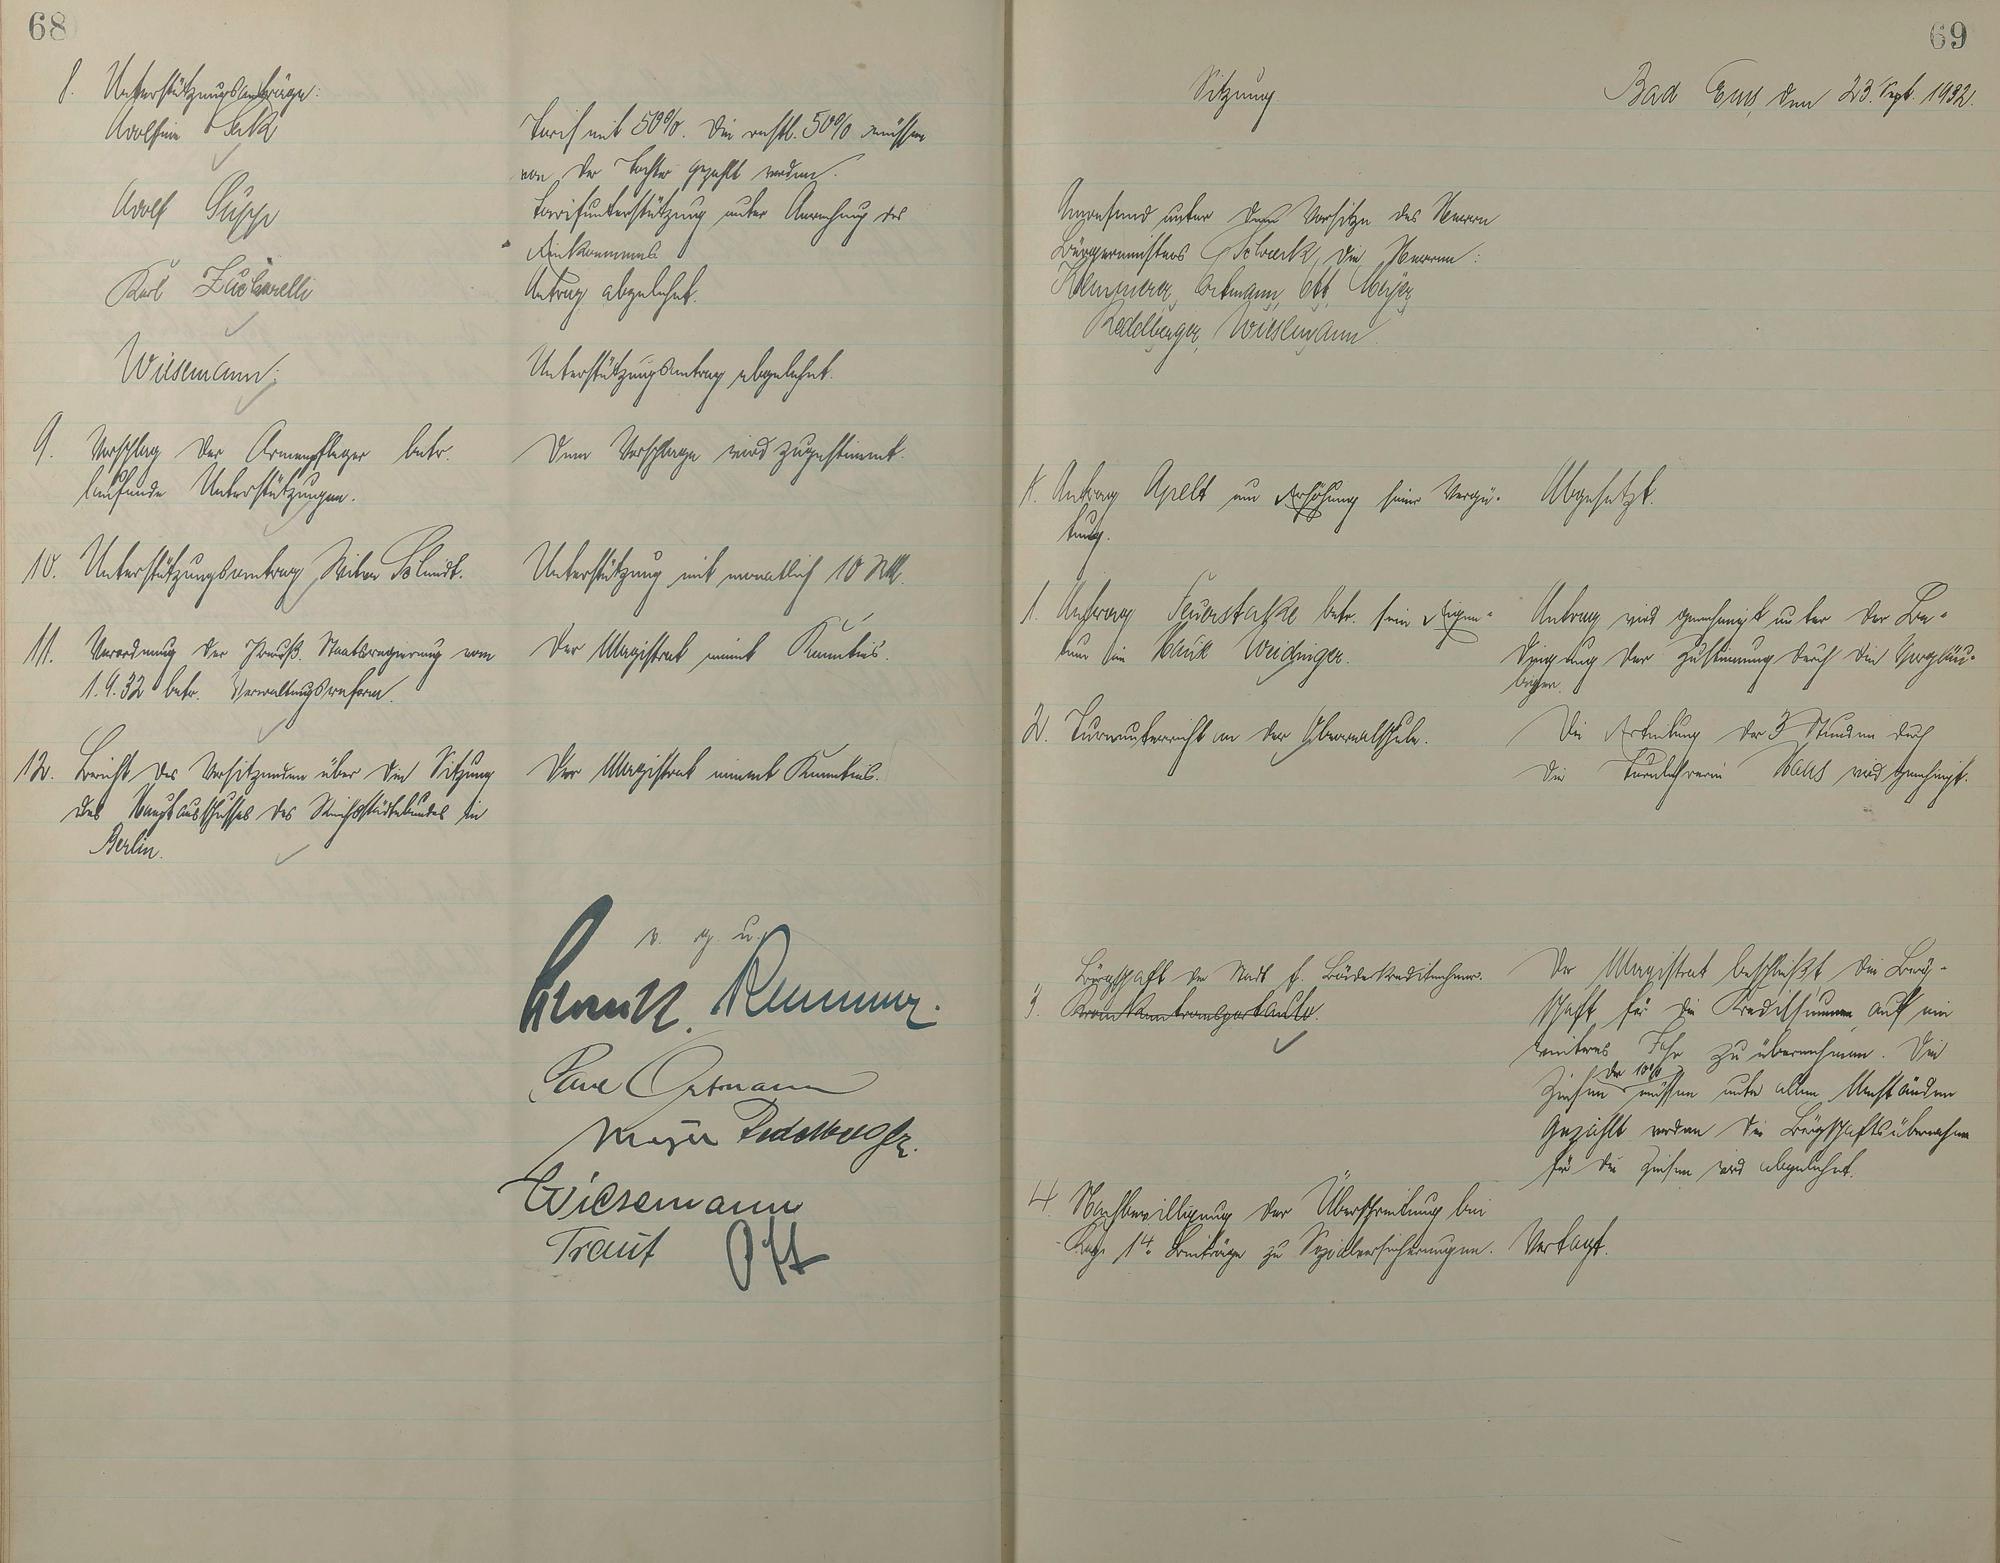 68
8. Unterstützungsanträge:
Adolfine
Tarif mit 50%. Die restl. 50% müssen
von der Tochter gezahlt werden.
Adolf
Tarifunterstützung unter Anrechnung des
Einkommens
Karl Zuccarelli
Antrag abgelehnt.
Wiesemann:
Unterstützungsantrag abgelehnt.
9. Vorschlag der Armenpfleger betr.
laufende Unterstützungen.
Dem Vorschlage wird zugestimmt.
10. Unterstützungsantrag Witwe Schmidt.
Unterstützung mit monatlich 10 RM.
11. Verordnung der Preuß. Staatsregierung vom
1.9.32 betr. Verwaltungsreform.
Der Magistrat nimmt Kenntnis.
12. Bericht des Vorsitzenden über die Sitzung
des Hauptausschusses des Reichsstädtebundes in
Berlin.
Der Magistrat nimmt Kenntnis.
v. g. u.
Ortmann
Meyer Redelberger
Wiesemann
Traut Ott
69
Sitzung
Bad Ems, den 23. Sept. 1932.
Anwesend unter dem Vorsitze des Herrn
Bürgermeisters die Herren:
Ortmann, Ott, Meyer,
Redelberger, Wiesemann.
Antrag Apelt um Erhöhung seiner Vergü-
tung.
Abgesetzt.
1. Antrag Feuerstacke betr. sein Eigen-
tum im Hause Weidinger.
Antrag wird genehmigt unter der Be-
dingung der Zustimmung durch die
2. Turnunterricht an der Oberrealschule.
Die Erteilung der 3 Stunden durch
die Turnlehrerin Haas wird genehmigt.
3. Bürgschaft der Stadt f. Bäderkreditnehmer.
Krankentransportauto.
Der Magistrat beschließt die Bürg-
schaft für die Kreditsummen auf ein
weiteres Jahr zu übernehmen. Die
der 10%
Zinsen müssen unter allen Umständen
gezahlt werden. Die Bürgschaftsübernahme
für die Zinsen wird abgelehnt.
4. Nachbewilligung der Überschreitung bei
Kap. 14 Beiträge zu Sozialversicherungen.
Vertagt.